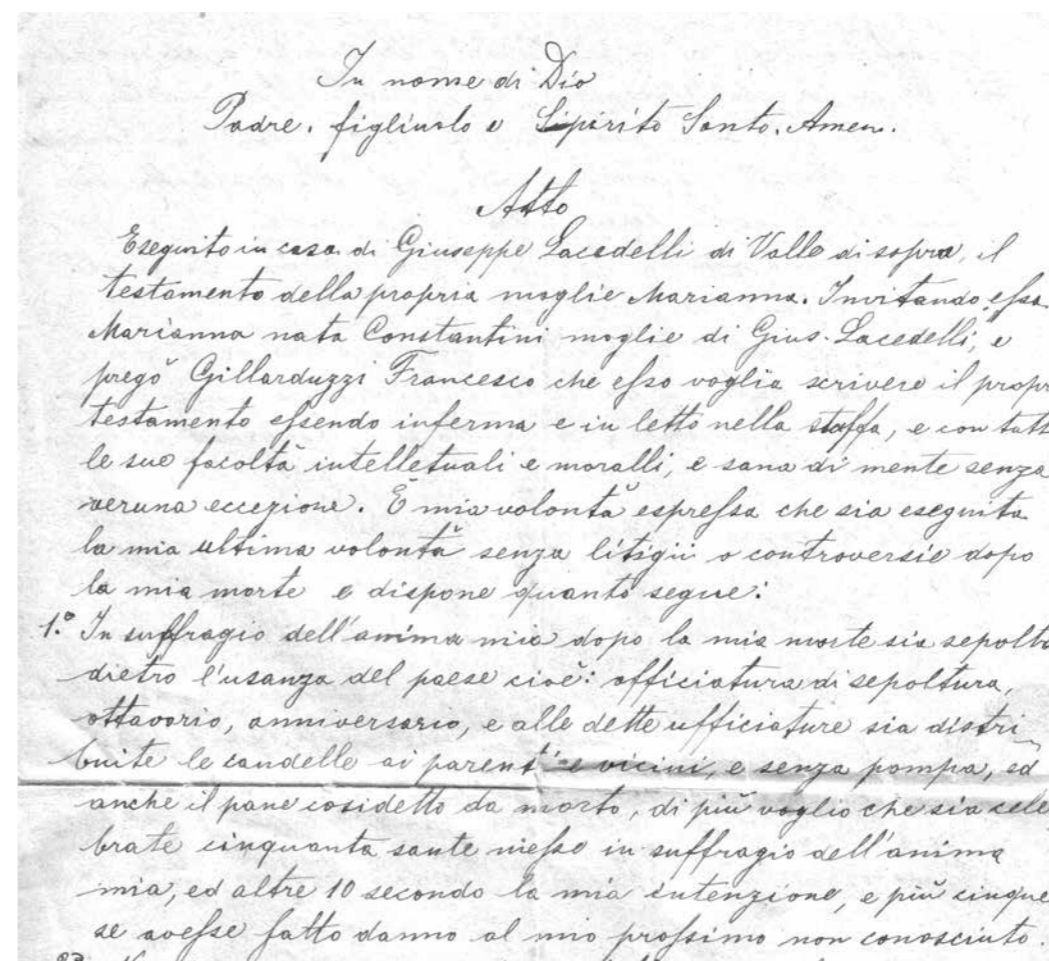 In nome di Dio
Padre, figliuolo e Sipirito Santo. Amen.
Atto
Eseguito in casa di Giuseppe Lacedelli di Valle di sopra, il
testamento della propria moglie Marianna. Invitando essa
Marianna nata Constantini moglie di Gius. Lacedelli, e
pregò Gillarduzzi Francesco che esso voglia scrivere il propr
testamento essendo inferma e in letto nella stuffa, e con tutt
le sue facoltà intelletuali e moralli, e sana di mente senza
veruna eccezione. È mia volontà espressa che sia eseguita
la mia ultima volontà senza litigii o controversie dopo
la mia morte e dispone quanto segue:
1.° In suffragio dell'anima mia dopo la mia morte sia sepolta
dietro l'usanza del paese cioè: officiatura di sepoltura,
ottavario, anniversario, e alle dette ufficiature sia distri
buite le candelle ai parenti e vicini, e senza pompa, ed
anche il pane cosidetto da morto, di più voglio che sia cele
brate cinquanta sante messe in suffragio dell'anima
mia, ed altre 10 secondo la mia intenzione, e più cinque
se avesse fatto danno al mio prossimo non conosciuto.